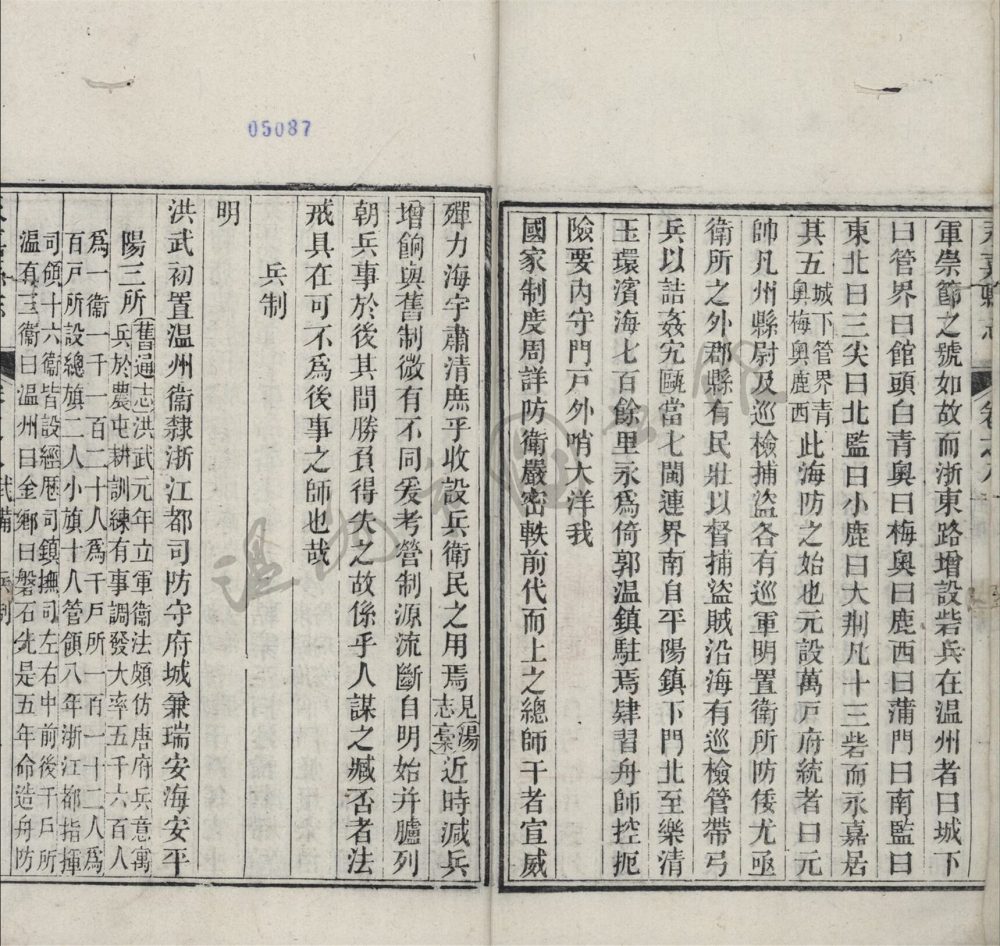 軍祟節之號如故而浙東路增設砦兵在温州者曰城下
曰管界曰館頭曰青奥曰梅奥曰鹿西曰蒲門曰南監曰
東北曰三尖曰北監曰小鹿曰大荆凡十三砦而永嘉居
其五城下管界青
奥梅奥鹿西此海防之始也元設萬戸府統者曰元
帥凡州縣尉及巡檢捕盜各有巡軍明置衛所防倭尤亟
衛所之外郡縣有民壯以督捕盜賊沿海有巡檢管帶弓
兵以詰姦宄甌當七閩連界南自平陽鎮下門北至樂清
玉環濱海七百餘里永爲倚郭温鎮駐焉肆習舟師控扼
險要内守門戸外哨大洋我
國家制度周詳防衛嚴密軼前代而上之總師干者宣威
殫力海宇肅清庶乎收設兵衛民之用焉見湯
志稾近時減兵
增餉與舊制微有不同爰考營制源流斷自明始并臚列
朝兵事於後其間勝負得失之故係乎人謀之臧否者法
戒具在可不爲後事之師也哉
兵制
明
洪武初置温州衞隸浙江都司防守府城兼瑞安海安平
陽三所舊通志洪武元年立軍衞法頗仿唐府兵意寓
兵於農屯耕訓練有事調發大率五千六百人
爲一衞一千一百二十八爲千戸所一百一十二人爲
百戸所設總旗二人小旗十人管領八年浙江都指揮
司領十六衞皆設經歷司鎮撫司左右中前後千戸所
温有三衞曰温州曰金鄉曰磐石先是五年命造舟防
05087